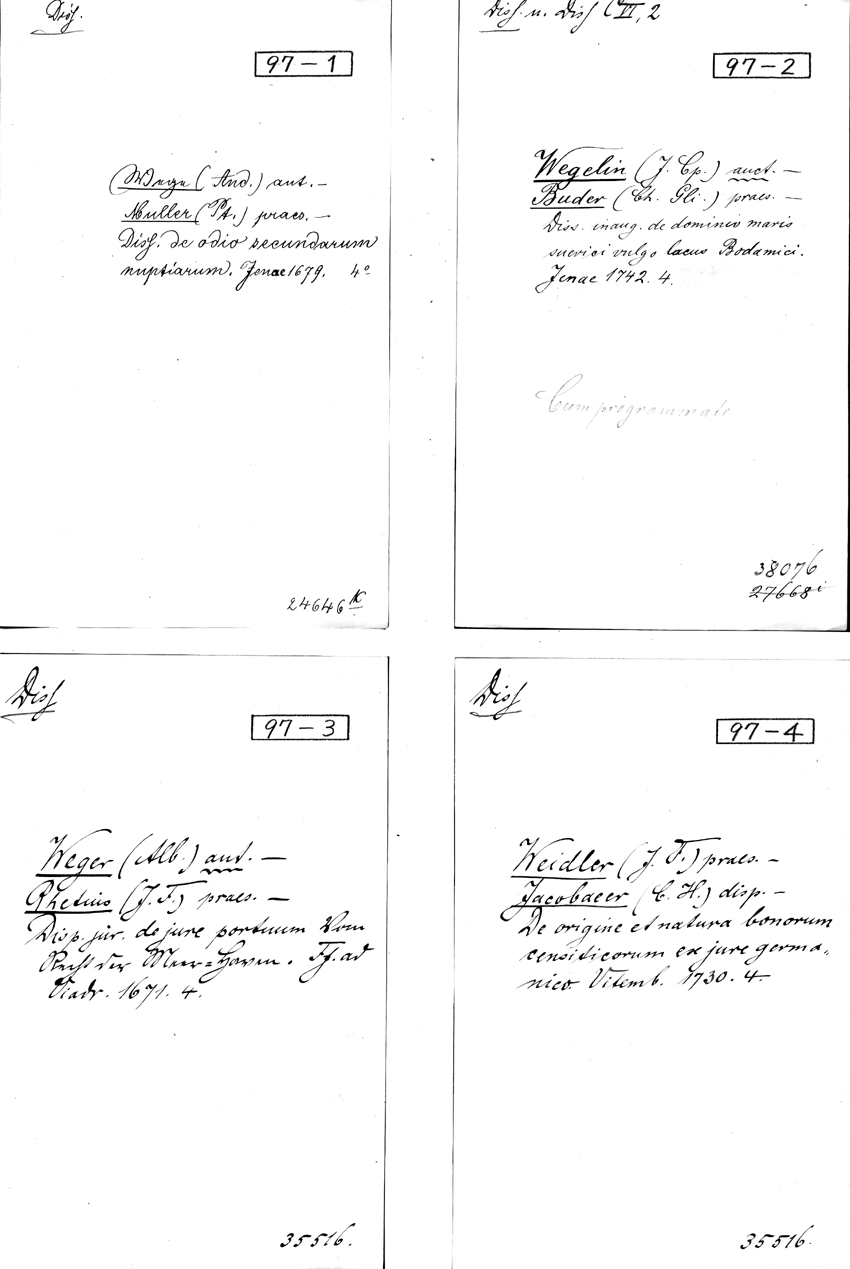 Diss.
97-1
Wege (And.) aut. —
Muller (Pt.) praes. —
Diss. de odio secundarum
nuptiarum. Jenae 1679. 4º
24646 K
Diss. u. Diss C VI, 2
97-2
Wegelin (J. Cp.) auct. —
Buder (Ch. Gli.) praes. —
Diss. inaug. de dominio maris
suevici vulgo lacus Bodamici.
Jenae 1742. 4.
Cum programmate
38076
27668 i
Diss
97-3
Weger (Alb.) aut. —
Rhetius (J. F.) praes. —
Disp. jur. de jure portuum Vom
Recht der Meer=Haven. Ff. ad
Viadr. 1671. 4.
35516.
Diss
97-4
Weidler (J. F.) praes. —
Jacobaeer (C. H.) disp. —
De origine et natura bonorum
censiticorum ex jure germa-
nico. Vitemb. 1730. 4.
35516.